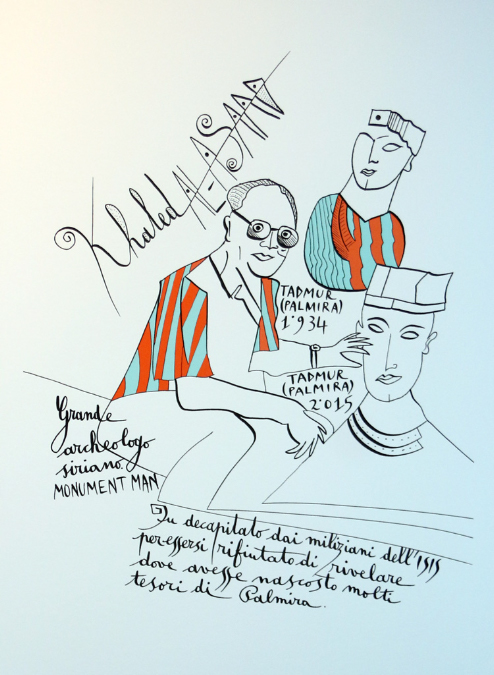 Khaled AL-ASAAD
TADMUR
(PALMIRA)
1934
TADMUR
(PALMIRA)
2015
Grande
archeologo
siriano.
MONUMENT MAN
Fu decapitato dai miliziani dell'ISIS
per essersi rifiutato di rivelare
dove avesse nascosto molti
tesori di Palmira.